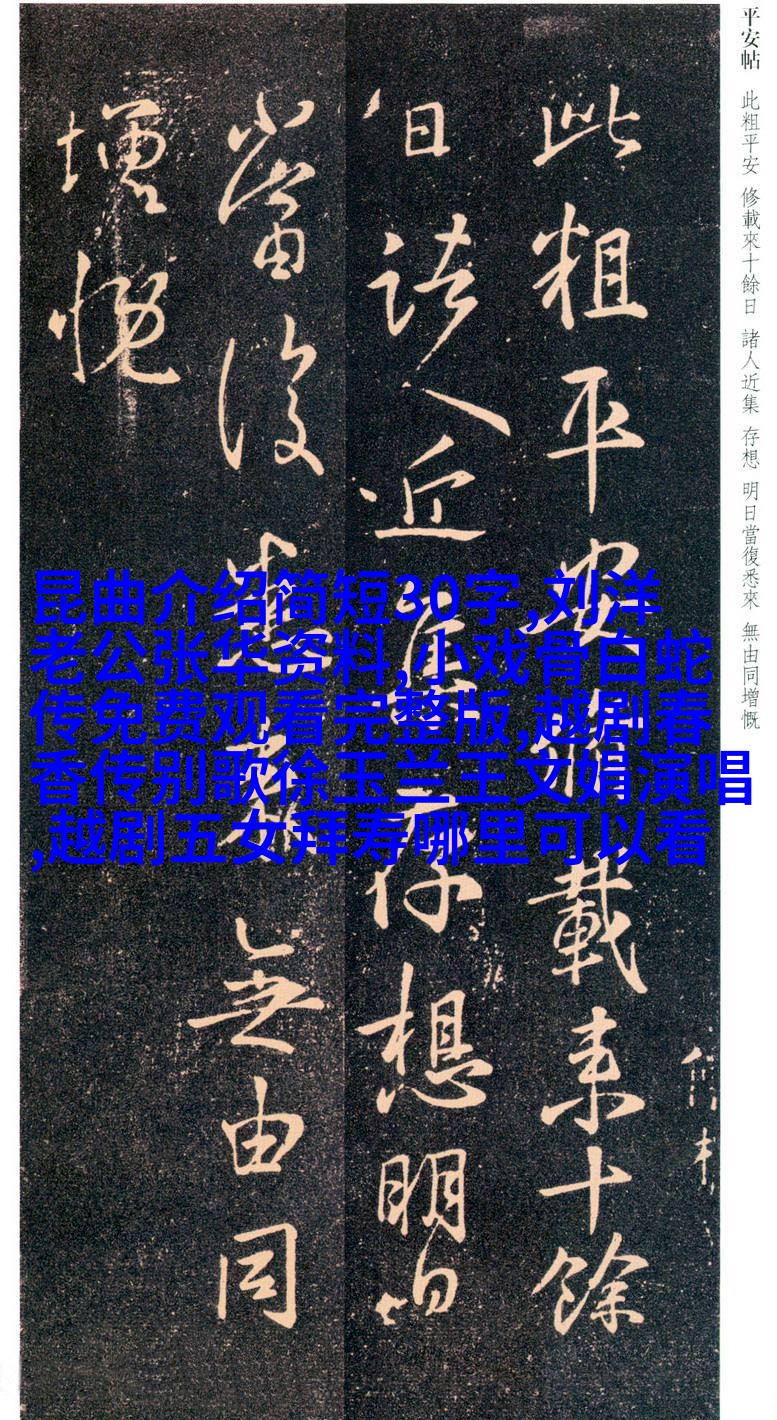 平安帖 此粗平安 修載來十餘日 諸人近集 存想 明日當復悉來 無由同增慨
此粗平安修載来十餘
日諸人近集存想明日
當復悉来無由同
增慨
昆曲介绍简短30字,刘洋
老公张华资料,小戏骨白蛇
传免费观看完整版,越剧春
香传别歌徐玉兰王文娟演唱
,越剧五女拜寿哪里可以看